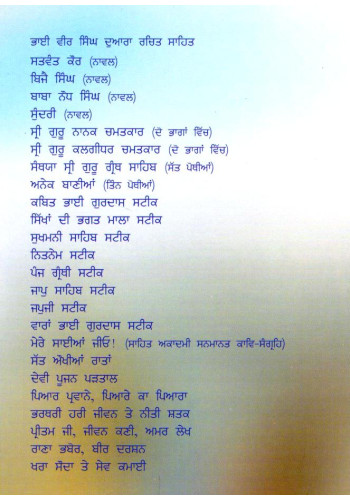 ਭਾਈ ਵੀਰ ਸਿੰਘ ਦੁਆਰਾ ਰਚਿਤ ਸਾਹਿਤ
ਸਤਵੰਤ ਕੌਰ (ਨਾਵਲ)
ਬਿਜੈ ਸਿੰਘ (ਨਾਵਲ)
ਬਾਬਾ ਨੌਧ ਸਿੰਘ (ਨਾਵਲ)
ਸੁੰਦਰੀ (ਨਾਵਲ)
ਸ੍ਰੀ ਗੁਰੂ ਨਾਨਕ ਚਮਤਕਾਰ (ਦੋ ਭਾਗਾਂ ਵਿੱਚ)
ਸ੍ਰੀ ਗੁਰੂ ਕਲਗੀਧਰ ਚਮਤਕਾਰ (ਦੋ ਭਾਗਾਂ ਵਿੱਚ)
ਸੰਥਯਾ ਸ੍ਰੀ ਗੁਰੂ ਗ੍ਰੰਥ ਸਾਹਿਬ (ਸੱਤ ਪੋਥੀਆਂ)
ਅਨੇਕ ਬਾਣੀਆਂ (ਤਿੰਨ ਪੋਥੀਆਂ)
ਕਬਿਤ ਭਾਈ ਗੁਰਦਾਸ ਸਟੀਕ
ਸਿੱਖਾਂ ਦੀ ਭਗਤ ਮਾਲਾ ਸਟੀਕ
ਸੁਖਮਨੀ ਸਾਹਿਬ ਸਟੀਕ
ਨਿਤਨੇਮ ਸਟੀਕ
ਪੰਜ ਗ੍ਰੰਥੀ ਸਟੀਕ
ਜਾਪੁ ਸਾਹਿਬ ਸਟੀਕ
ਜਪੁਜੀ ਸਟੀਕ
ਵਾਰਾਂ ਭਾਈ ਗੁਰਦਾਸ ਸਟੀਕ
ਮੇਰੇ ਸਾਈਆਂ ਜੀਓ! (ਸਾਹਿਤ ਅਕਾਦਮੀ ਸਨਮਾਨਤ ਕਾਵਿ-ਸੰਗ੍ਰਹਿ)
ਸੱਤ ਔਖੀਆਂ ਰਾਤਾਂ
ਦੇਵੀ ਪੂਜਨ ਪੜਤਾਲ
ਪਿਆਰ ਪ੍ਰਵਾਨੇ, ਪਿਆਰੇ ਕਾ ਪਿਆਰਾ
ਭਰਥਰੀ ਹਰੀ ਜੀਵਨ ਤੇ ਨੀਤੀ ਸ਼ਤਕ
ਪ੍ਰੀਤਮ ਜੀ, ਜੀਵਨ ਕਣੀ, ਅਮਰ ਲੇਖ
ਰਾਣਾ ਭਬੋਰ, ਬੀਰ ਦਰਸ਼ਨ
ਖਰਾ ਸੌਦਾ ਤੇ ਸੇਵ ਕਮਾਈ